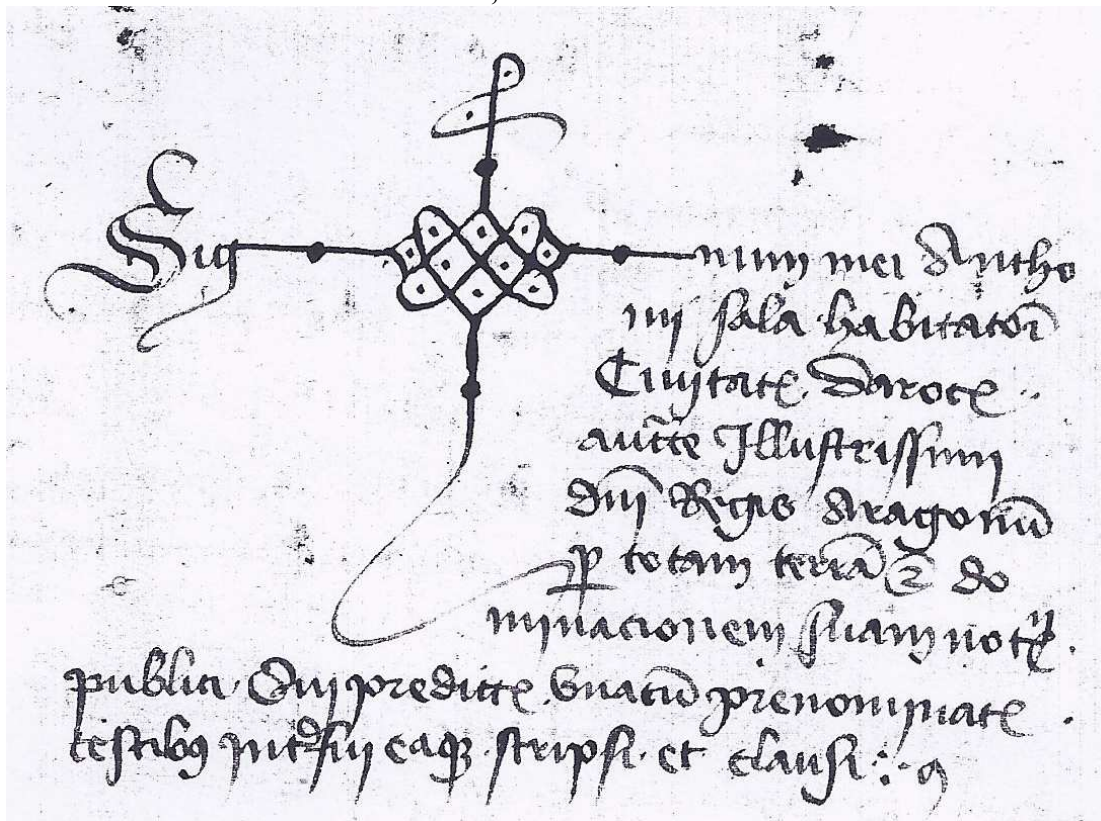 Sig num mei Antho
nii sala habitatoris
Ciuitatis Daroce
aucte Illustrissimi
dni Regis Aragonu
p totam terrā et do
minacionem suam not
publici Qui predictis vnacū prenominatis
testibus int fui eaque scripsi et clausi